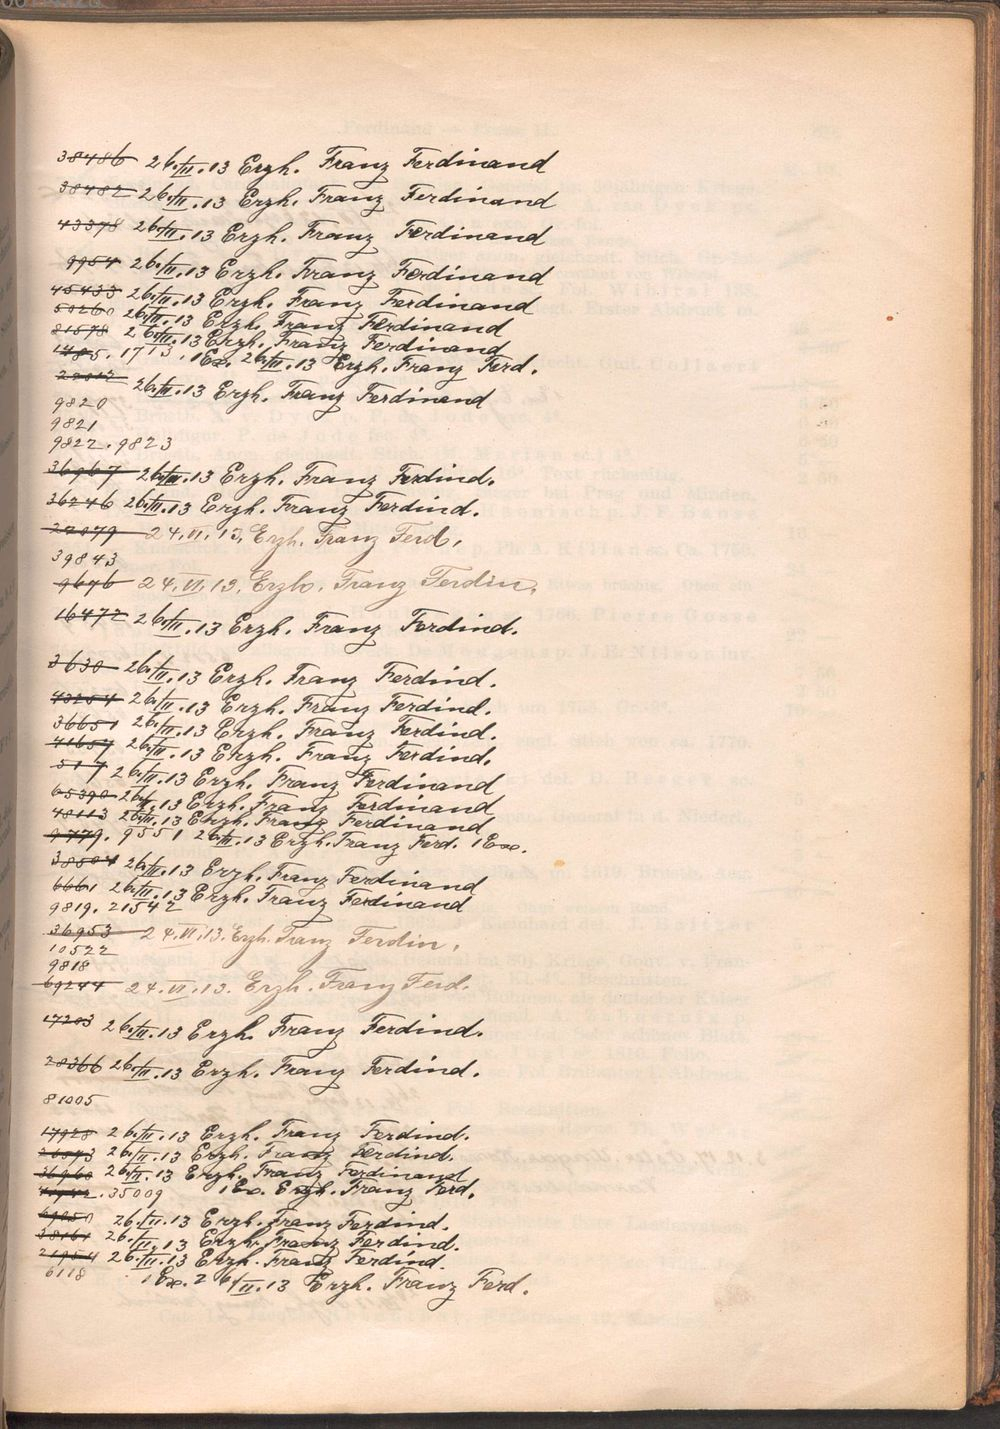 38486 26./II.13 Erzh. Franz Ferdinand
38482 26./II.13 Erzh. Franz Ferdinand
43378 26./II.13 Erzh. Franz Ferdinand
9954 26./II.13 Erzh. Franz Ferdinand
45433 26./II.13 Erzh. Franz Ferdinand
50260 26./II.13 Erzh. Franz Ferdinand
81578 26./II.13 Erzh. Franz Ferdinand
1785. 1713. 1 Ex. 26./II.13 Erzh. Franz Ferd.
26./II.13 Erzh. Franz Ferdinand
9820
9821
9822. 9823
36967 26./II.13 Erzh. Franz Ferdind.
36246 26./II.13 Erzh. Franz Ferdind.
27079 24.VI.13. Erzh. Franz Ferd.
39843
9676 24.VI.13. Erzh. Franz Ferdin.
16472 26./II.13 Erzh. Franz Ferdind.
3630 26./II.13 Erzh. Franz Ferdind.
43254 26./II.13 Erzh. Franz Ferdind.
36651 26./II.13 Erzh. Franz Ferdind.
41657 26./II.13 Erzh. Franz Ferdind.
517 26./II.13 Erzh. Franz Ferdinand
65390 26./II.13 Erzh. Franz Ferdinand
48113 26./II.13 Erzh. Franz Ferdinand
9779. 9551 26./II.13 Erzh. Franz Ferd. 1 Ex.
38504 26./II.13 Erzh. Franz Ferdinand
6661 26./II.13 Erzh. Franz Ferdinand
9819. 21542
36953 24.VI.13. Erzh. Franz Ferdin.
10522
9818
69244 24.VI.13. Erzh. Franz Ferd.
17203 26./II.13 Erzh. Franz Ferdind.
28366 26./II.13 Erzh. Franz Ferdind.
81005
17928 26./II.13 Erzh. Franz Ferdind.
26./II.13 Erzh. Franz Ferdind.
36960 26./II.13 Erzh. Franz Ferdinand
.35009 1 Ex. Erzh. Franz Ferd.
69250 26./II.13 Erzh. Franz Ferdind.
38161 26./II.13 Erzh. Franz Ferdind.
21954 26./II.13 Erzh. Franz Ferdind.
6118 1 Ex. 26./II.13 Erzh. Franz Ferd.